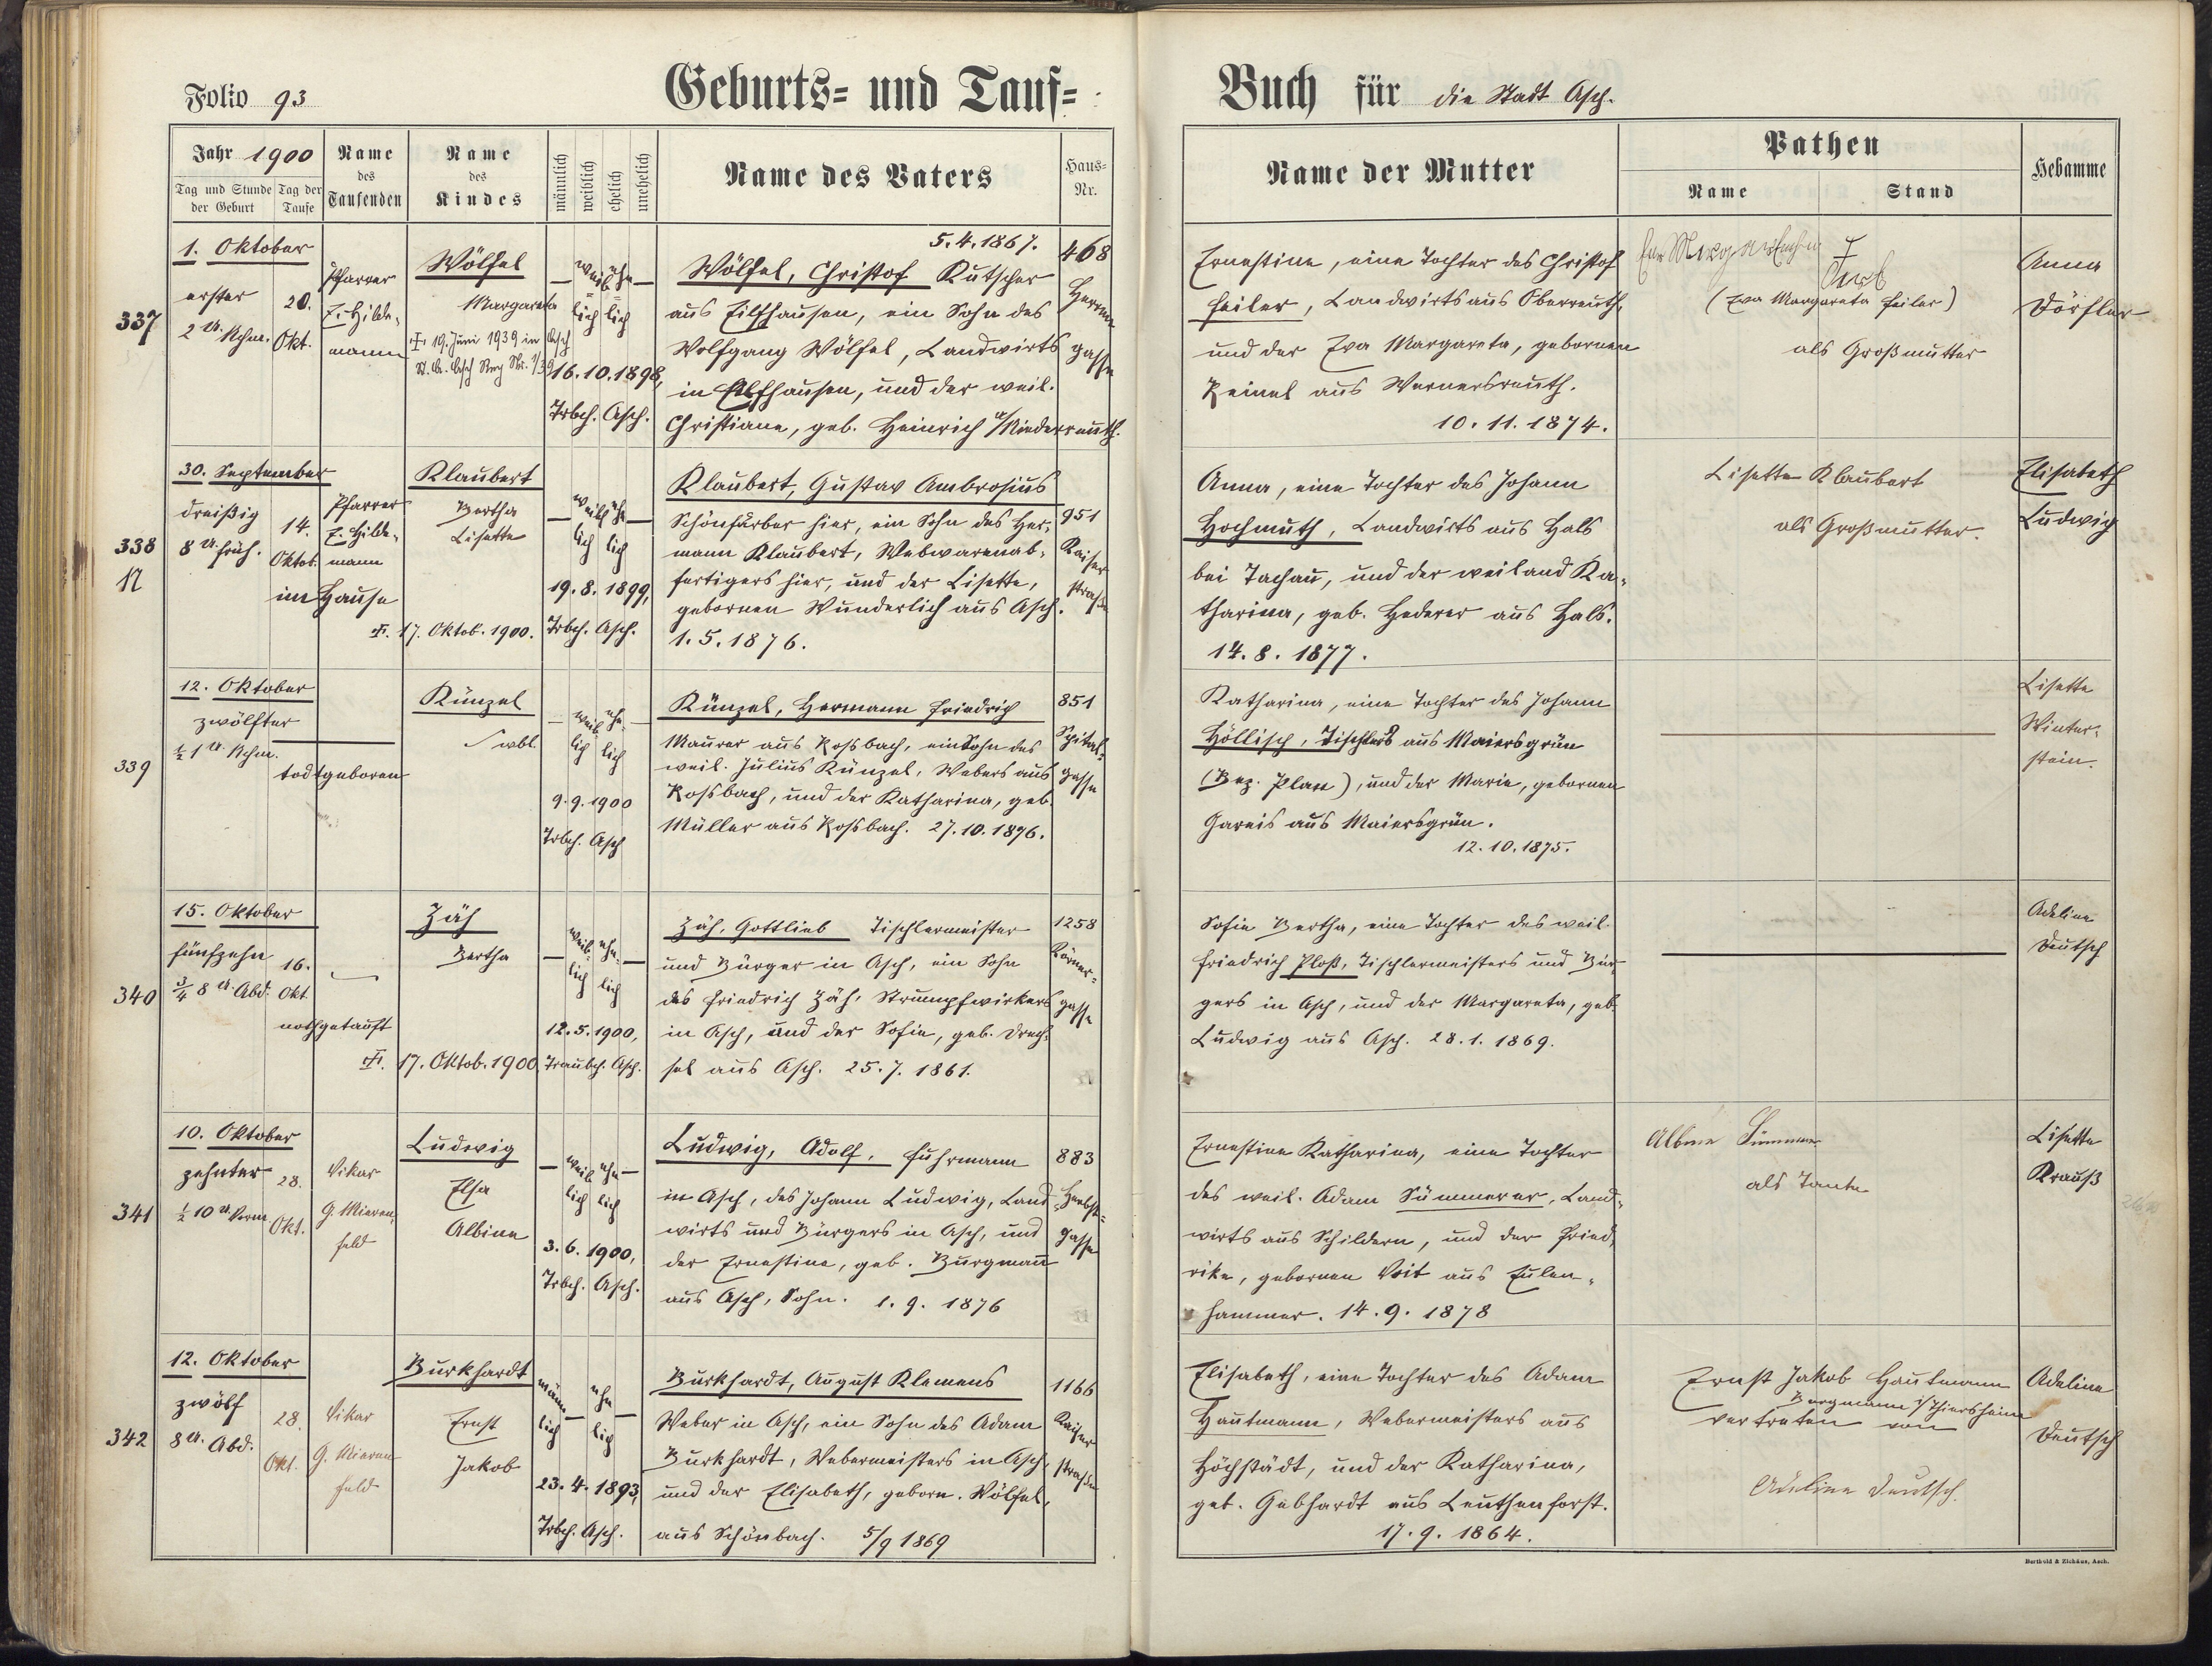 Folio 93
Geburts= und Tauf=
Buch für die Stadt Asch.
Jahr 1900
Tag und Stunde der Geburt
Tag der Taufe
Name des Taufenden
Name des Kindes
männlich
weiblich
ehelich
unehelich
Name des Vaters
Haus=Nr.
Name der Mutter
Pathen
Name
Stand
Hebamme
337
1. Oktober
erster
2 U. Nchm.
20.
Okt.
Pfarrer
E. Hilde-
mann
Wölfel
Margareta
19. Juni 1939 in Asch
weib=
lich
ehe=
lich
16.10.1898,
Trbch. Asch.
5.4.1867.
Wölfel, Christof Kutscher
aus Eilfhausen, ein Sohn des
Wolfgang Wölfel, Landwirts
in Eilfhausen, und der weil.
Christiane, geb. Heinrich a/Niederreuth.
468
Herren
gasse
Ernestine, eine Tochter des Christof
Feiler, Landwirts aus Oberreuth,
und der Eva Margareta, gebornen
Reinel aus Wernersreuth.
10.11.1874.
(Eva Margareta Feiler)
als Großmutter
Anna
Dörfler
338
30. September
dreißig
8 U. früh.
14.
Oktob.
im Hause
Pfarrer
E. Hilde-
mann
Klaubert
Bertha
Lisette
17. Oktob. 1900.
weib
lich
ehe
lich
19.8.1899,
Trbch. Asch.
Klaubert, Gustav Ambrosius
Schönfärber hier, ein Sohn des Her-
mann Klaubert, Webwarenab-
fertigers hier, und der Lisette,
gebornen Wunderlich aus Asch.
1.5.1876.
951
Kaiser
straße
Anna, eine Tochter des Johann
Hochmuth, Landwirts aus Hals
bei Tachau, und der weiland Ka-
tharina, geb. Hederer aus Hals.
14.8.1877.
Lisette Klaubert
als Großmutter.
Elisabeth
Ludwig
339
12. Oktober
zwölfter
½ 1 U. Nchm.
todtgeboren
Künzel
wbl.
weib
lich
ehe-
lich
9.9.1900
Trbch. Asch
Künzel, Hermann Friedrich
Maurer aus Rossbach, ein Sohn des
weil. Julius Künzel, Webers aus
Rossbach, und der Katharina, geb.
Müller aus Rossbach. 27.10.1876.
851
Spital-
gasse
Katharina, eine Tochter des Johann
Höllisch, Tischlers aus Maiersgrün
(Bez. Plan), und der Marie, gebornen
Gareis aus Maiersgrün.
12.10.1875.
Lisette
Winter-
stein.
340
15. Oktober
fünfzehn
¾ 8 U. Abd.
16.
Okt.
nothgetauft
Zäh
Bertha
17. Oktob. 1900
weib-
lich
ehe-
lich
12.5.1900,
Traubch. Asch.
Zäh, Gottlieb Tischlermeister
und Bürger in Asch, ein Sohn
des Friedrich Zäh, Strumpfwirkers
in Asch, und der Sofie, geb. Drech-
sel aus Asch. 25.7.1861.
1258
Körner-
gasse
Sofie Bertha, eine Tochter des weil.
Friedrich Ploß, Tischlermeisters und Bür-
gers in Asch, und der Margareta, geb.
Ludwig aus Asch. 28.1.1869.
Adeline
Deutsch
341
10. Oktober
zehnter
½ 10 U. Vorm
28.
Okt.
Vikar
G. Mieren-
feld
Ludwig
Elsa
Albine
weib
lich
ehe
lich
3.6.1900,
Trbch. Asch.
Ludwig, Adolf, Fuhrmann
in Asch, des Johann Ludwig, Land-
wirts und Bürgers in Asch, und
der Ernestine, geb. Burgmann
aus Asch, Sohn. 1.9.1876
883
Herbst-
gasse
Ernestine Katharina, eine Tochter
des weil. Adam Sümmerer, Land-
wirts aus Schildern, und der Fried-
rike, gebornen Voit aus Eulen-
hammer. 14.9.1878
Albine
als Tante
Lisette
Krauß
342
12. Oktober
zwölf
8 U. Abd.
28.
Okt.
Vikar
G. Mieren
feld
Burkhardt
Ernst
Jakob
männ
lich
ehe
lich
23.4.1893,
Trbch. Asch.
Burkhardt, August Klemens
Weber in Asch, ein Sohn des Adam
Burkhardt, Webermeisters in Asch,
und der Elisabeth, geborn. Wölfel,
aus Schönbach. 5/9 1869
1166
Kaiser
straße
Elisabeth, eine Tochter des Adam
Hautmann, Webermeisters aus
Höchstädt, und der Katharina,
geb. Gebhardt aus Leuthenforst.
17.9.1864.
Ernst Jakob Hautmann
Bergmann i/Thiersheim
vertreten von
Adeline Deutsch.
Adeline
Deutsch
Berthold & Zichäus, Asch.